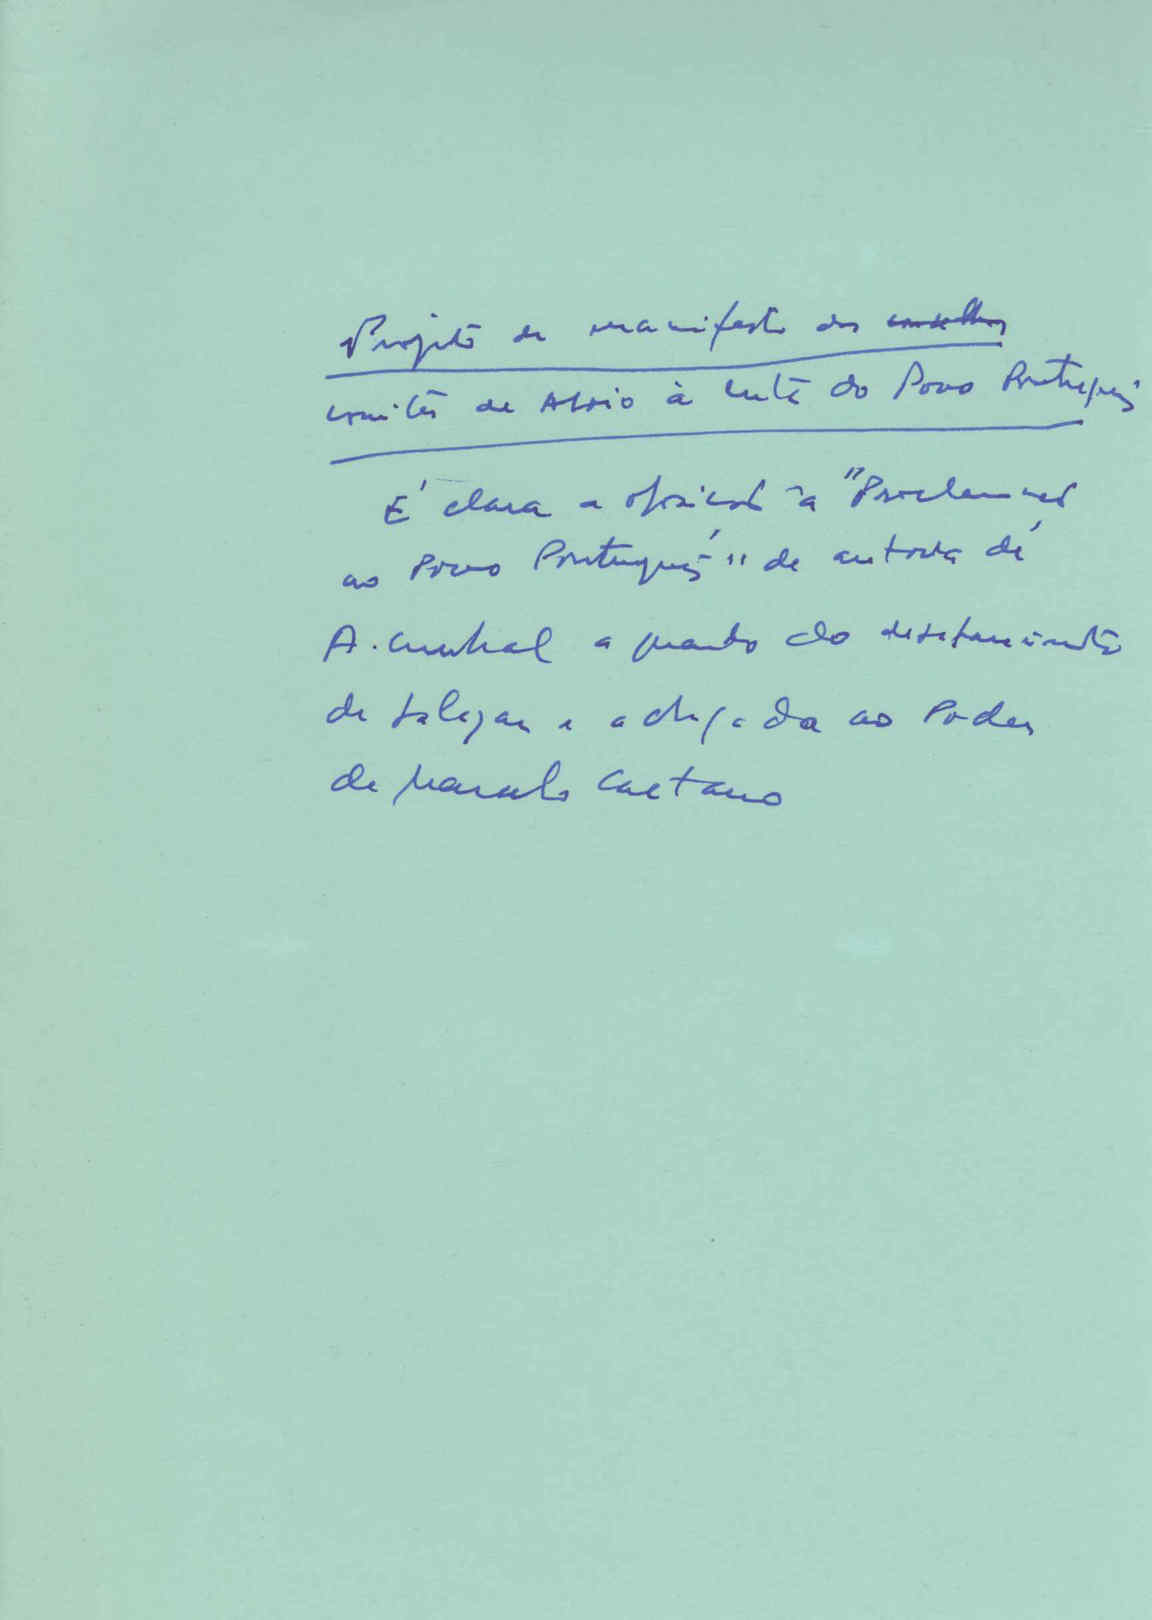 Projeto de manifesto dos conselhos
comités de Apoio à luta do Povo Português
É clara a oposição à "Proclamação
ao Povo Português" de autoria de
A. Cunhal a quando do
de Salazar e a chegada ao Poder
de Marcelo Caetano